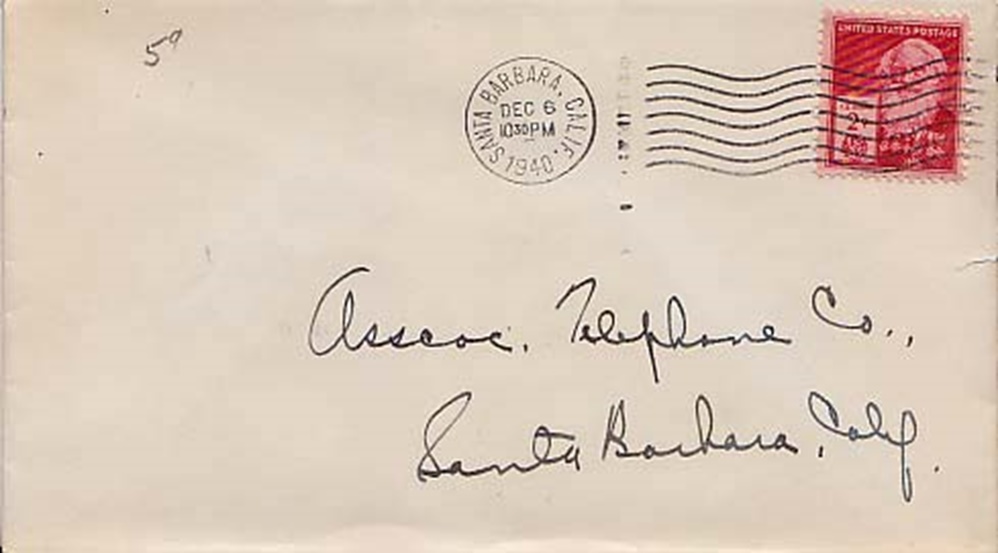 5¢
SANTA BARBARA, CALIF.
DEC 6
10 30 PM
1940
UNITED STATES POSTAGE
2¢
Assoc. Telephone Co.,
Santa Barbara, Calif.